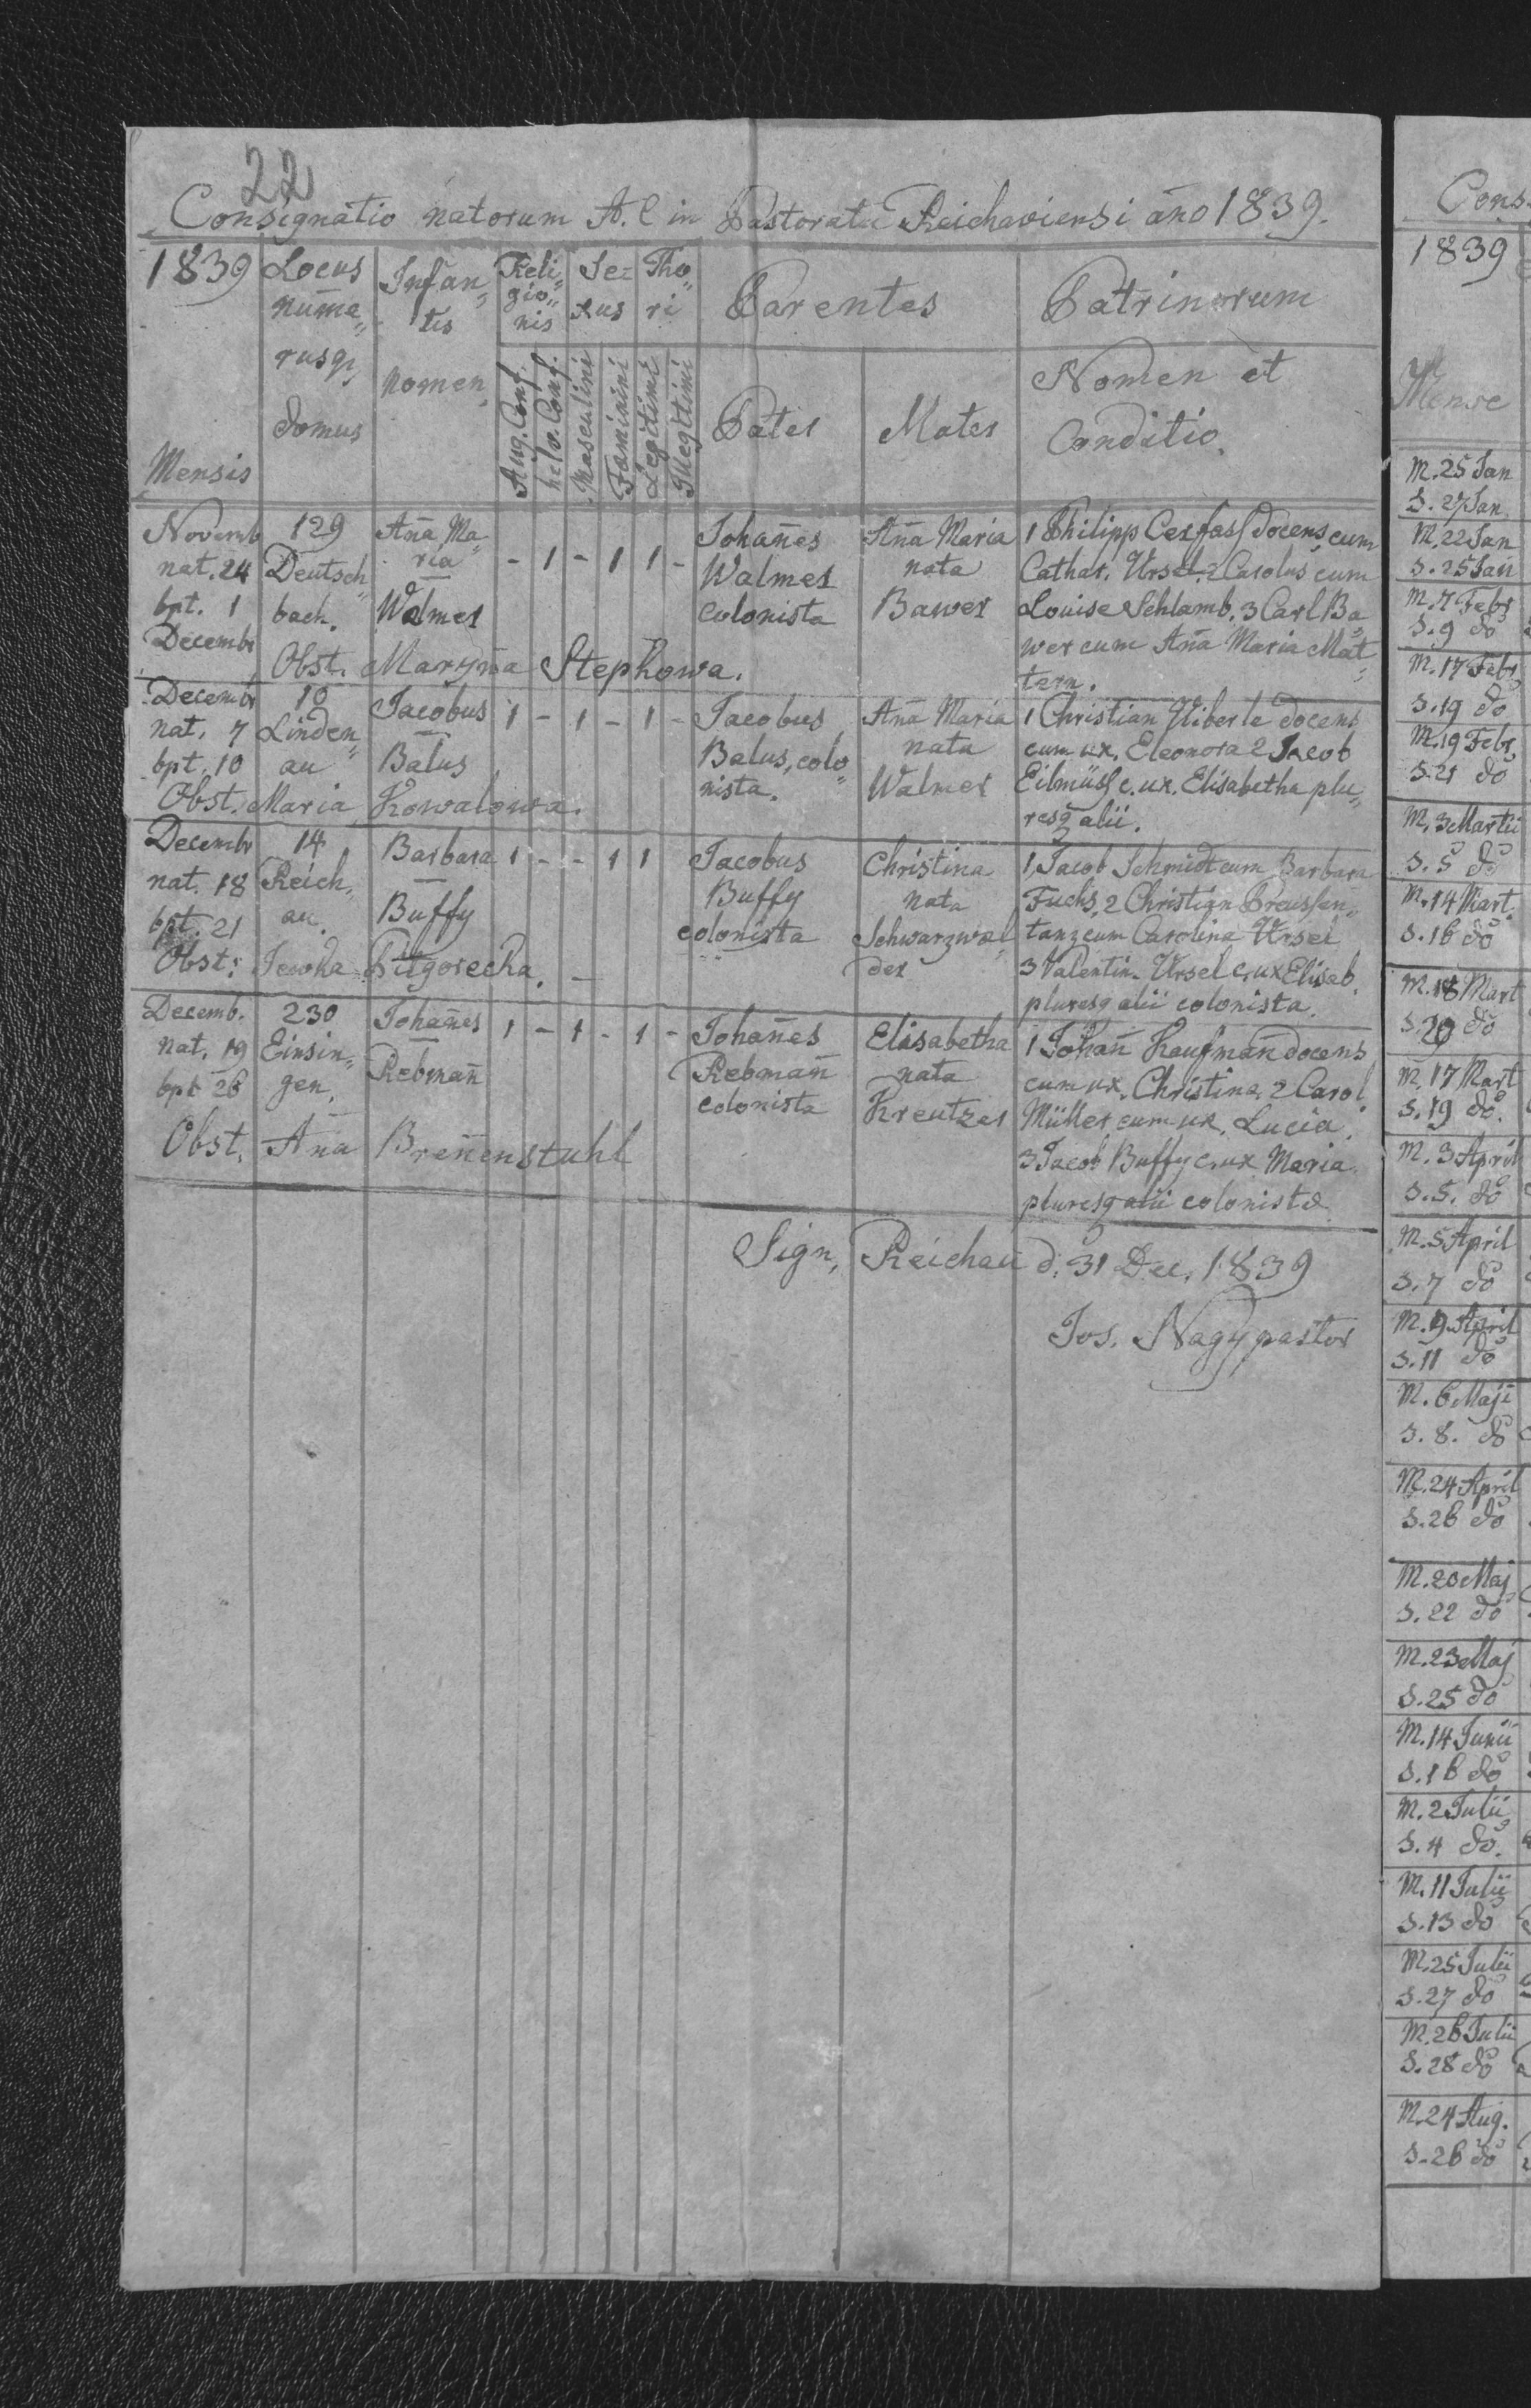 22
Consignatio natorum A. C in Pastoratu Reichaviensi año 1839.
1839 Locus nume„ rusq domus
Mensis
Infan„ tis nomen
Reli„ gio„ nis
Se= xus
Tho„ ri
Aug. Conf.
helv. Conf.
Masculini
Faminini
Legitimi
Illegitimi
Parentes
Pater
Mater
Patrinorum
Nomen et
Conditio.
Novemb 129 Aña Ma„ - 1 - 1 1 - Johañes Aña Maria 1 Philipp Cerfass docens, cum
nat. 24 Deutsch„ ria Walmer nata Cathar. Ursel, 2 Carolus cum
bpt. 1 bach. Walmer colonista Bawer Louise Schlamb. 3 Carl Ba„
Decembr wer cum Aña Maria Mat„
Obst. Maryna Stephowa. tern.
Decembr 10 Jacobus 1 - 1 - 1 - Jacobus Aña Maria 1 Christian Uiberle docens
nat. 7 Linden„ Balus, colo„ nata cum ux. Eleonora 2 Jacob
bpt. 10 au Balus nista. Walmer Eilmüss c. ux. Elisabetha plu„
Obst. Maria Kowalowa. resq alii.
Decembr 14 Barbara 1 - - 1 1 Jacobus Christina 1, Jacob Schmidt cum Barbara
nat. 18 Reich„ Buffy nata Fuchs, 2 Christian Preussen„
bpt. 21 au. Buffy colonista Schwarzwäl tanz cum Carolina Ursel
Obst: Jewka Pitgorecka. - der 3 Valentin Ursel c. ux Elisab.
pluresq alii colonista.
Decemb. 230 Johañes 1 - 1 - 1 - Johañes Elisabetha 1 Johañ Kaufmañ docens
nat. 19 Einsin„ Rebmañ Rebmañ nata cum ux. Christina, 2 Carol
bpt 26 gen, colonista Kreutzer Müller cum ux. Lucia.
Obst. Aña Breñenstuhl 3 Jacob Buffy c. ux Maria
pluresq alii colonistæ
Sign, Reichau d. 31 Dec. 1839
Jos. Nagy pastor
Cons
1839
Mense
M. 25 Jan
S. 27 Jan.
M. 22 Jan
S. 25 Jan
M. 7 Febr
S. 9 do
M. 17 Febr
S. 19 do
M. 19 Febr.
S. 21 do
M. 3 Martii
S. 5 do
M. 14 Mart.
S. 16 do
M. 18 Mart
S. 20 do
M. 17 Mart
S. 19 do.
M. 3 April
S. 5. do
M. 5 April
S. 7 do
M. 9 April
S. 11 do
M. 6 Maji
S. 8. do
M. 24 April
S. 26 do
M. 20 Maj
S. 22 do
M. 23 Maj
S. 25 do
M. 14 Junii
S. 16 do
M. 2 Julii
S. 4 do.
M. 11 Julii
S. 13 do
M. 25 Julii
S. 27 do
M. 26 Julii
S. 28 do
M. 24 Aug.
S. 26 do